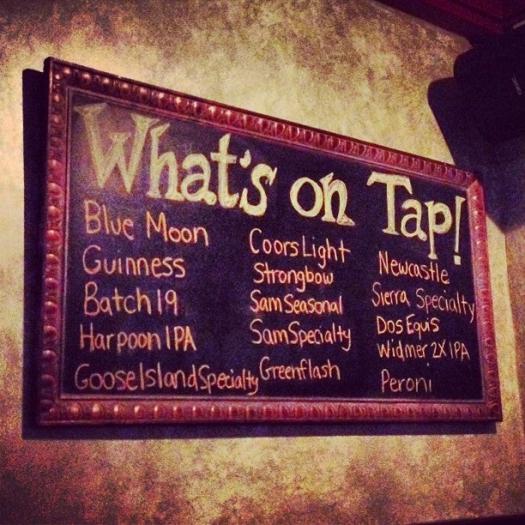 What's on Tap!
Blue Moon
Guinness
Batch 19
Harpoon IPA
Goose Island Specialty
Coors Light
Strongbow
Sam Seasonal
Sam Specialty
Greenflash
Newcastle
Sierra Specialty
Dos Equis
Widmer 2X IPA
Peroni